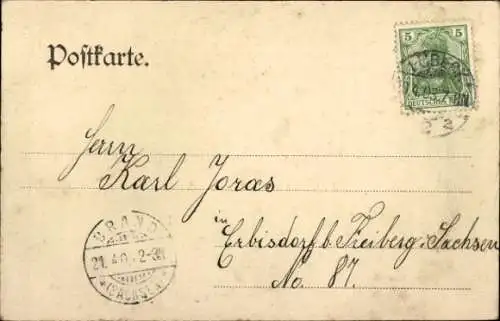 Postkarte.
5 5
DEUTSCHES
Herrn
Karl Joras
in
Erbisdorf b. Freiberg, Sachsen
No. 87.
BRAND
21. 4.0
(SACHSEN)